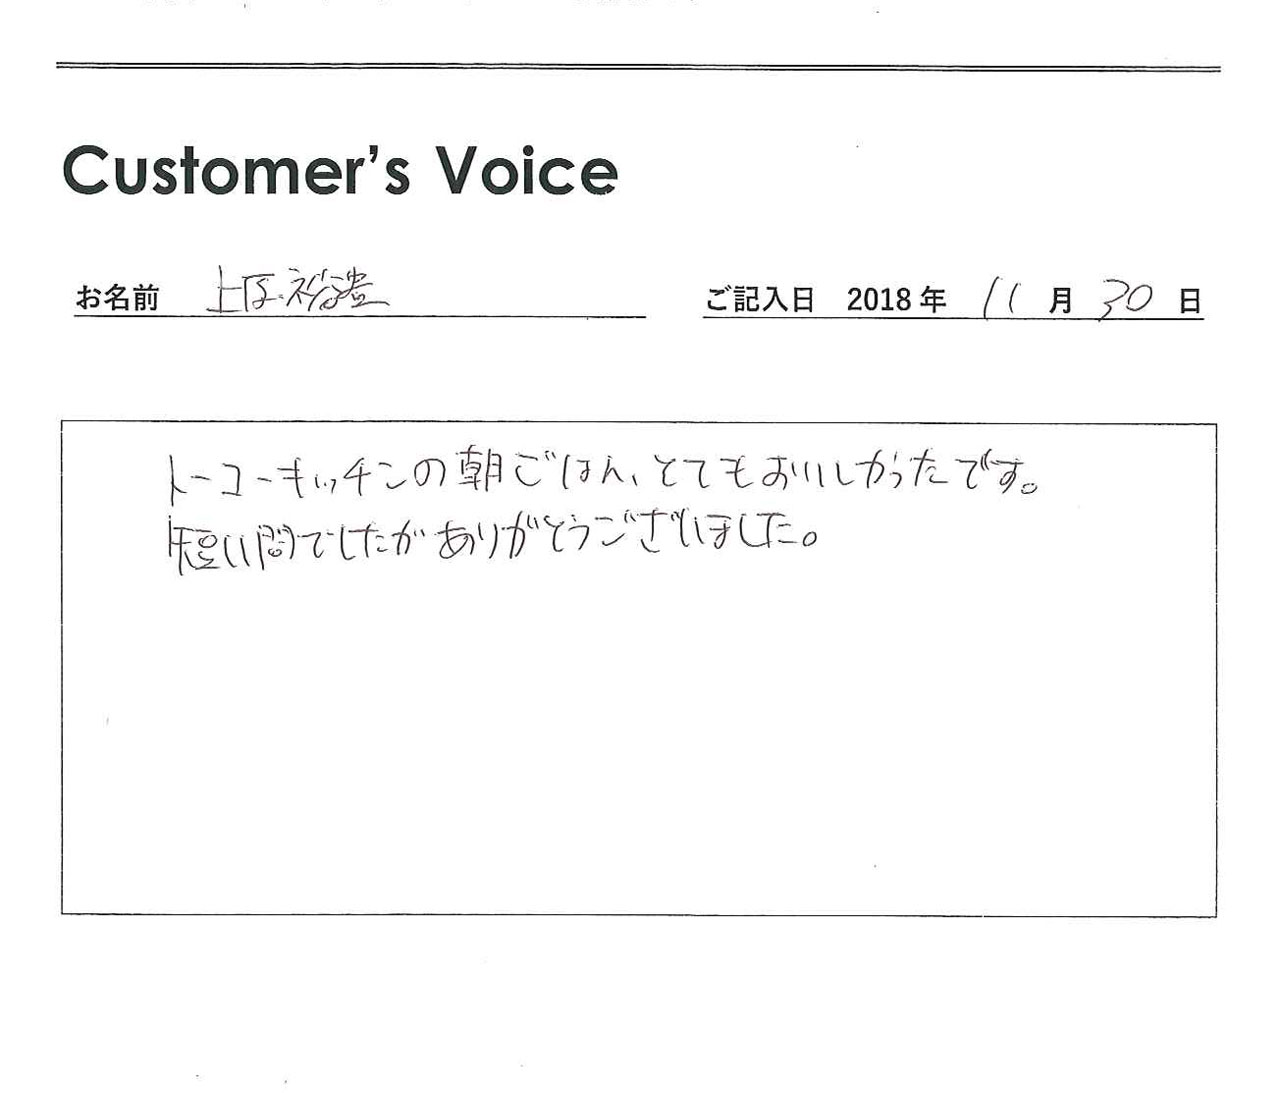 Customer's Voice
お名前 上原
ご記入日 2018年 11月30日
トーコーキッチンの朝ごはん、とてもおいしかったです。
短い間でしたがありがとうございました。